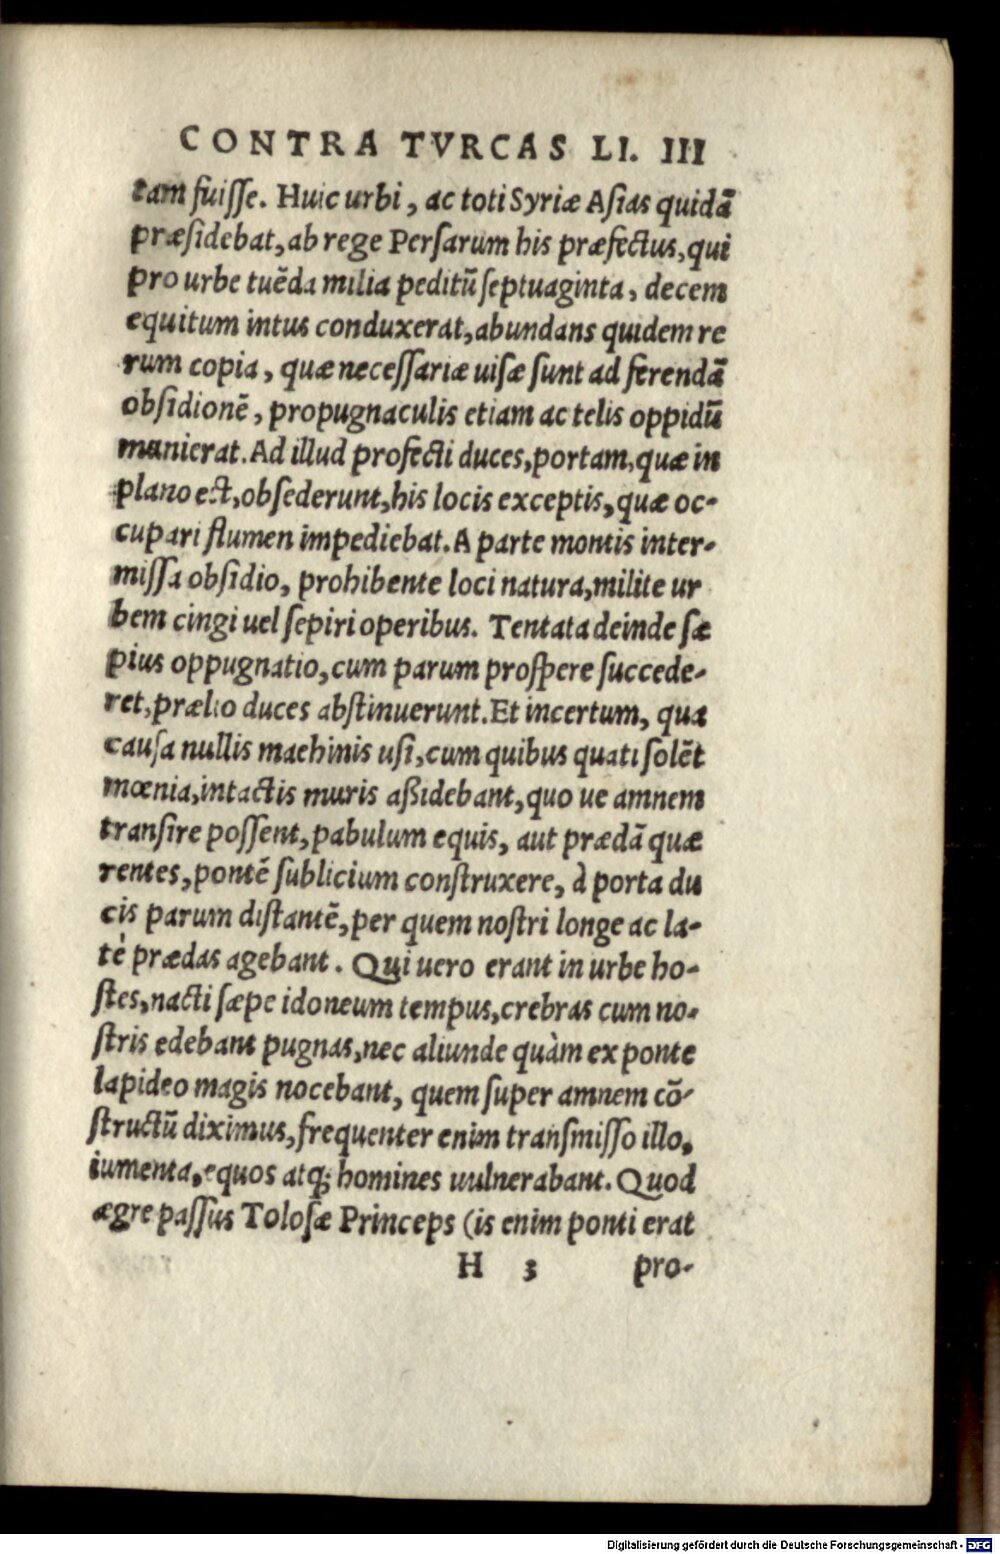 CONTRA TVRCAS LI. III
tam fuiſſe. Huic urbi, ac toti Syriæ Aſias quidã
præſidebat, ab rege Perſarum his præfectus, qui
pro urbe tuẽda milia peditũ ſeptuaginta, decem
equitum intus conduxerat, abundans quidem re
rum copia, quæ neceſſariæ uiſæ ſunt ad ferendã
obſidionẽ, propugnaculis etiam ac telis oppidũ
munierat. Ad illud profecti duces, portam, quæ in
plano eſt, obſederunt, his locis exceptis, quæ oc-
cupari flumen impediebat. A parte montis inter-
miſſa obſidio, prohibente loci natura, milite ur
bem cingi uel ſepiri operibus. Tentata deinde ſæ
pius oppugnatio, cum parum proſpere ſuccede-
ret, prælio duces abſtinuerunt. Et incertum, qua
cauſa nullis machinis uſi, cum quibus quati ſolẽt
mœnia, intactis muris aßidebant, quo ue amnem
tranſire poſſent, pabulum equis, aut prædã quæ
rentes, pontẽ ſublicium conſtruxere, à porta du
cis parum diſtantẽ, per quem noſtri longe ac la-
tè prædas agebant. Qui uero erant in urbe ho-
ſtes, nacti ſæpe idoneum tempus, crebras cum no-
ſtris edebant pugnas, nec aliunde quàm ex ponte
lapideo magis nocebant, quem ſuper amnem cõ-
ſtructũ diximus, frequenter enim tranſmiſſo illo,
iumenta, equos atq; homines uulnerabant. Quod
ægre paſſus Toloſæ Princeps (is enim ponti erat
H 3 pro-
Digitalisierung gefördert durch die Deutsche Forschungsgemeinschaft - DFG